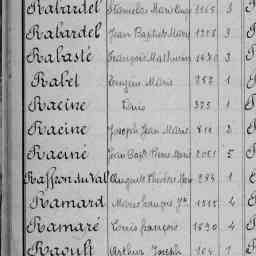 Rabardel Stanislas Marie 1165 3
Rabardel Jean Baptiste Marie 1258 3
Rabasté François Mathurin 1430 3
Rabet Eugène Marie 287 1
Racine Denis 375 1
Racine Joseph Jean Marie 811 2
Racine Jean Bapte Pierre Marie 2051 5
Raffron du Val Auguste Théodore Marie 284 1
Ramard Marie François 1555 4
Ramaré Louis François 1690 4
Raoult Arthur Joseph 164 1